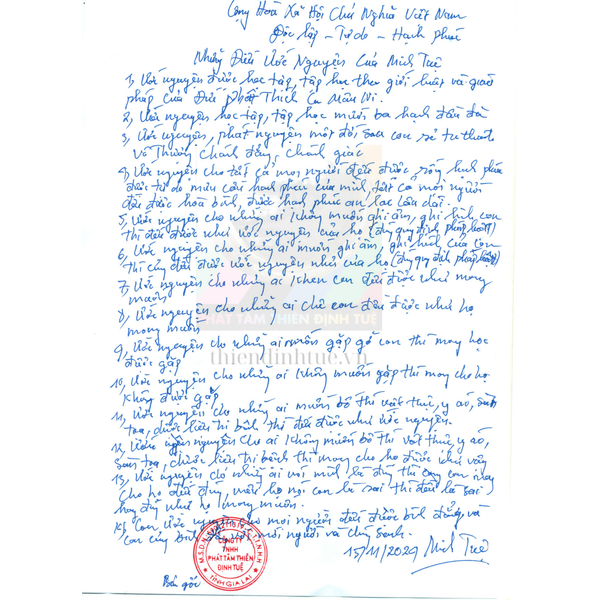 Cộng Hoà Xã Hội Chủ Nghĩa Việt Nam
Độc lập - Tự do - Hạnh phúc
Những Điều Ước Nguyện Của Minh Tuệ
1, Ước nguyện được học tập, tập học theo giới luật và giáo
pháp của Đức Phật Thích Ca Mâu Ni.
2, Ước nguyện học tập, tập học mười ba hạnh đầu đà
3, Ước nguyện, phát nguyện một đời sau con sẽ tu thành
Vô Thượng Chánh đẳng, Chánh giác
4, Ước nguyện cho tất cả mọi người đều được sống hạnh phúc
được tự do mưu cầu hạnh phúc của mình, tất cả mọi người
đều được hoà bình, được hạnh phúc an lạc lâu dài.
5, Ước nguyện cho những ai không muốn ghi âm, ghi hình con
thì đều được như ước nguyện của họ (đúng quy định pháp luật)
6, Ước nguyện cho những ai muốn ghi âm, ghi hình của con
thì cũng đều được ước nguyện như của họ (đúng quy định pháp luật)
7, Ước nguyện cho những ai khen con đều được như mong
muốn
8, Ước nguyện cho những ai chê con đều được như họ
mong muốn
PHÁT TÂM THIỀN ĐỊNH TUỆ
9, Ước nguyện cho những ai muốn gặp gỡ con thì may học
được gặp
thiendinhtue.vn
10, Ước nguyện cho những ai không muốn gặp thì may cho họ
không được gặp
11, Ước nguyện cho những ai muốn bố thí vật thực, y áo, sàn
toạ, dược liệu trị bệnh, thì đều được như ước nguyện.
12, Ước nguyện cho ai không muốn bố thí vật thực, y áo,
sàn toạ, dược liệu trị bệnh thì may cho họ được như vậy
13, Ước nguyện có những ai với mình là đúng thì con này
cho họ đều đúng, nếu họ nói con là sai thì đều là sai
hay đúng như họ mong muốn.
Con ước nguyện cho mọi người đều được bình đẳng và
con cũng bình đẳng với mọi người và chúng sanh.
15/11/2024 Minh Tuệ
M.S.D.N
T.N.H.H
CÔNG TY
TNHH
PHÁT TÂM THIỀN
ĐỊNH TUỆ
TỈNH GIA LAI
Bản gốc